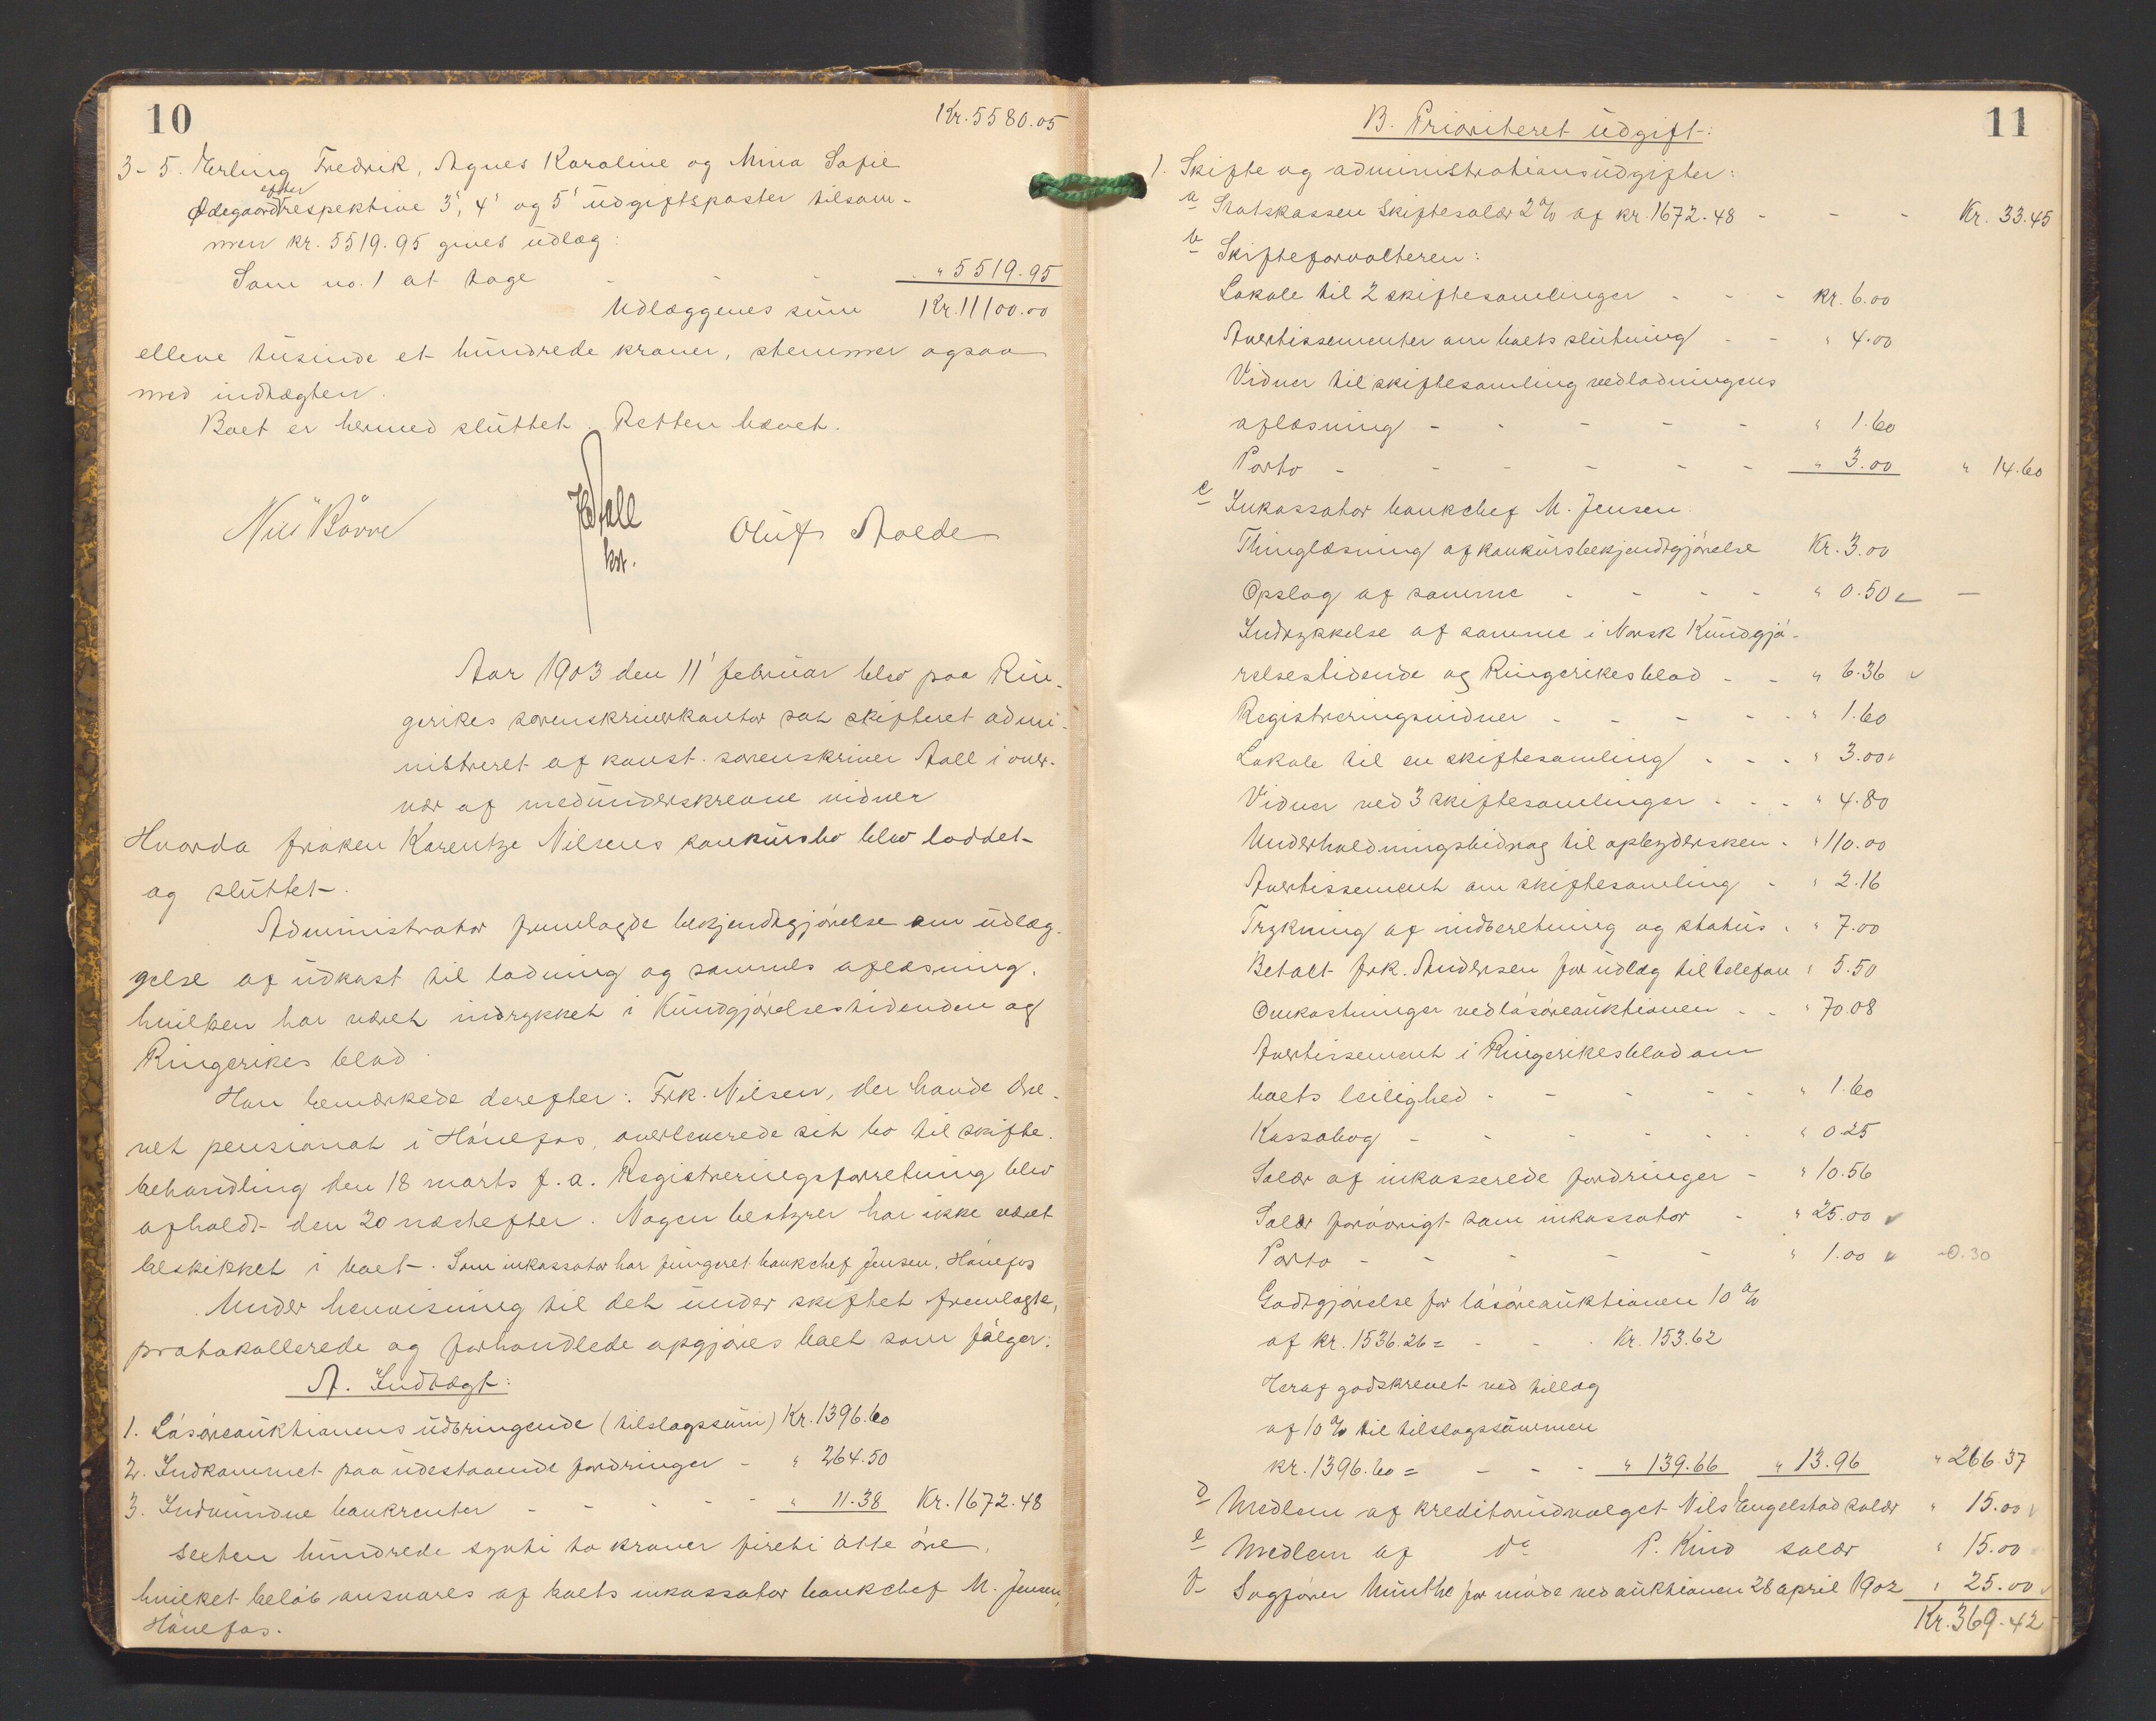 10
Kr. 5580.05
3-5. Erling Fredrik, Agnes Karoline og Mina Sofie
efter
Ødegaard respektive 3', 4' og 5' udgiftsposter tilsam-
men kr. 5519.95 gives udlæg:
Som no. 1 at tage - - " 5519.95
Udlæggenes sum Kr. 11100.00
elleve tusinde et hundrede kroner, stemmer ogsaa
med indtægten.
Boet er hermed sluttet. Retten hævet.
Aall
kst.
Oluf Aalde
Aar 1903 den 11' februar blev paa Rin-
gerikes sorenskriverkontor sat skifteret admi-
nistreret af konst. sorenskriver Aall i over-
vær af medunderskrevne vidner
Hvorda frøken Karentze Nilsens konkursbo blev loddet
og sluttet.
Administrator fremlagde bekjendtgjørelse om udlæg-
gelse af udkast til lodning og sammes aflæsning,
hvilken har været indrykket i Kundgjørelsestidenden og
Ringerikes blad.
Han bemærkede derefter: Frk. Nilsen, der havde dre-
vet pensionat i Hønefos, overleverede sit bo til skifte-
behandling den 18 marts f. a. Registreringsforretning blev
afholdt den 20 næstefter. Nogen bestyrer har ikke været
beskikket i boet. Som inkassator har fungeret bankchef Jensen, Hønefos
Under henvisning til det under skiftet fremlagte,
protokollerede og forhandlede opgjøres boet som følger:
A. Indtægt:
1. Løsøreauktionens udbringende (tilslagssum) Kr. 1396.60
2. Indkommet paa udestaaende fordringer - " 264.50
3. Indvundne bankrenter - - - - - " 11.38 Kr. 1672.48
sexten hundrede sytti to kroner fireti otte øre,
hvilket beløb ansvares af boets inkassator bankchef M. Jensen,
Hønefos.
11
B. Prioriteret udgift:
1. Skifte og administrationsudgifter:
a Statskassen skiftesalær 2% af kr. 1672.48 - - - Kr. 33.45
b Skifteforvalteren:
Lokale til 2 skiftesamlinger - - - kr. 6.00
Avertissementer om boets slutning - - " 4.00
Vidner til skiftesamling ved lodningens
aflæsning - - - - - " 1.60
Porto - - - - - - " 3.00 " 14.60
c Inkassator bankchef M. Jensen:
Thinglæsning af konkursbekjendtgjørelse Kr. 3.00
Opslag af samme - - - - " 0.50 -
Indrykkelse af samme i Norsk Kundgjø-
relsestidende og Ringerikes blad - - " 6.36
Registreringsvidner - - - - - " 1.60
Lokale til en skiftesamling - - - " 3.00
Vidner ved 3 skiftesamlinger - - - " 4.80
Underholdningsbidrag til opbydersken - " 110.00
Avertissement om skiftesamling - " 2.16
Trykning af indberetning og status - " 7.00
Betalt frk. Andersen for udlæg til telefon " 5.50
Omkostninger ved løsøreauktionen - - " 70.08
Avertissement i Ringerikes blad om
boets leilighed - - - - - " 1.60
Kassabog - - - - - - " 0.25
Salær af inkasserede fordringer - " 10.56
Salær forøvrigt som inkassator - " 25.00
Porto - - - - - " 1.00 -0.30
Godtgjørelse for løsøreauktionen 10%
af kr. 1536.26 = - - - Kr. 153.62
Heraf godskrevet ved tillæg
af 10% til tilslagssummen
kr. 1396.60 = - - - " 139.66 " 13.96 " 266.37
d Medlem af kreditorudvalget Nils Engelstad salær " 15.00
e Medlem af do P. Kind salær " 15.00
f Sagfører Münthe for møde ved auktionen 28 april 1902 " 25.00
Kr. 369.42